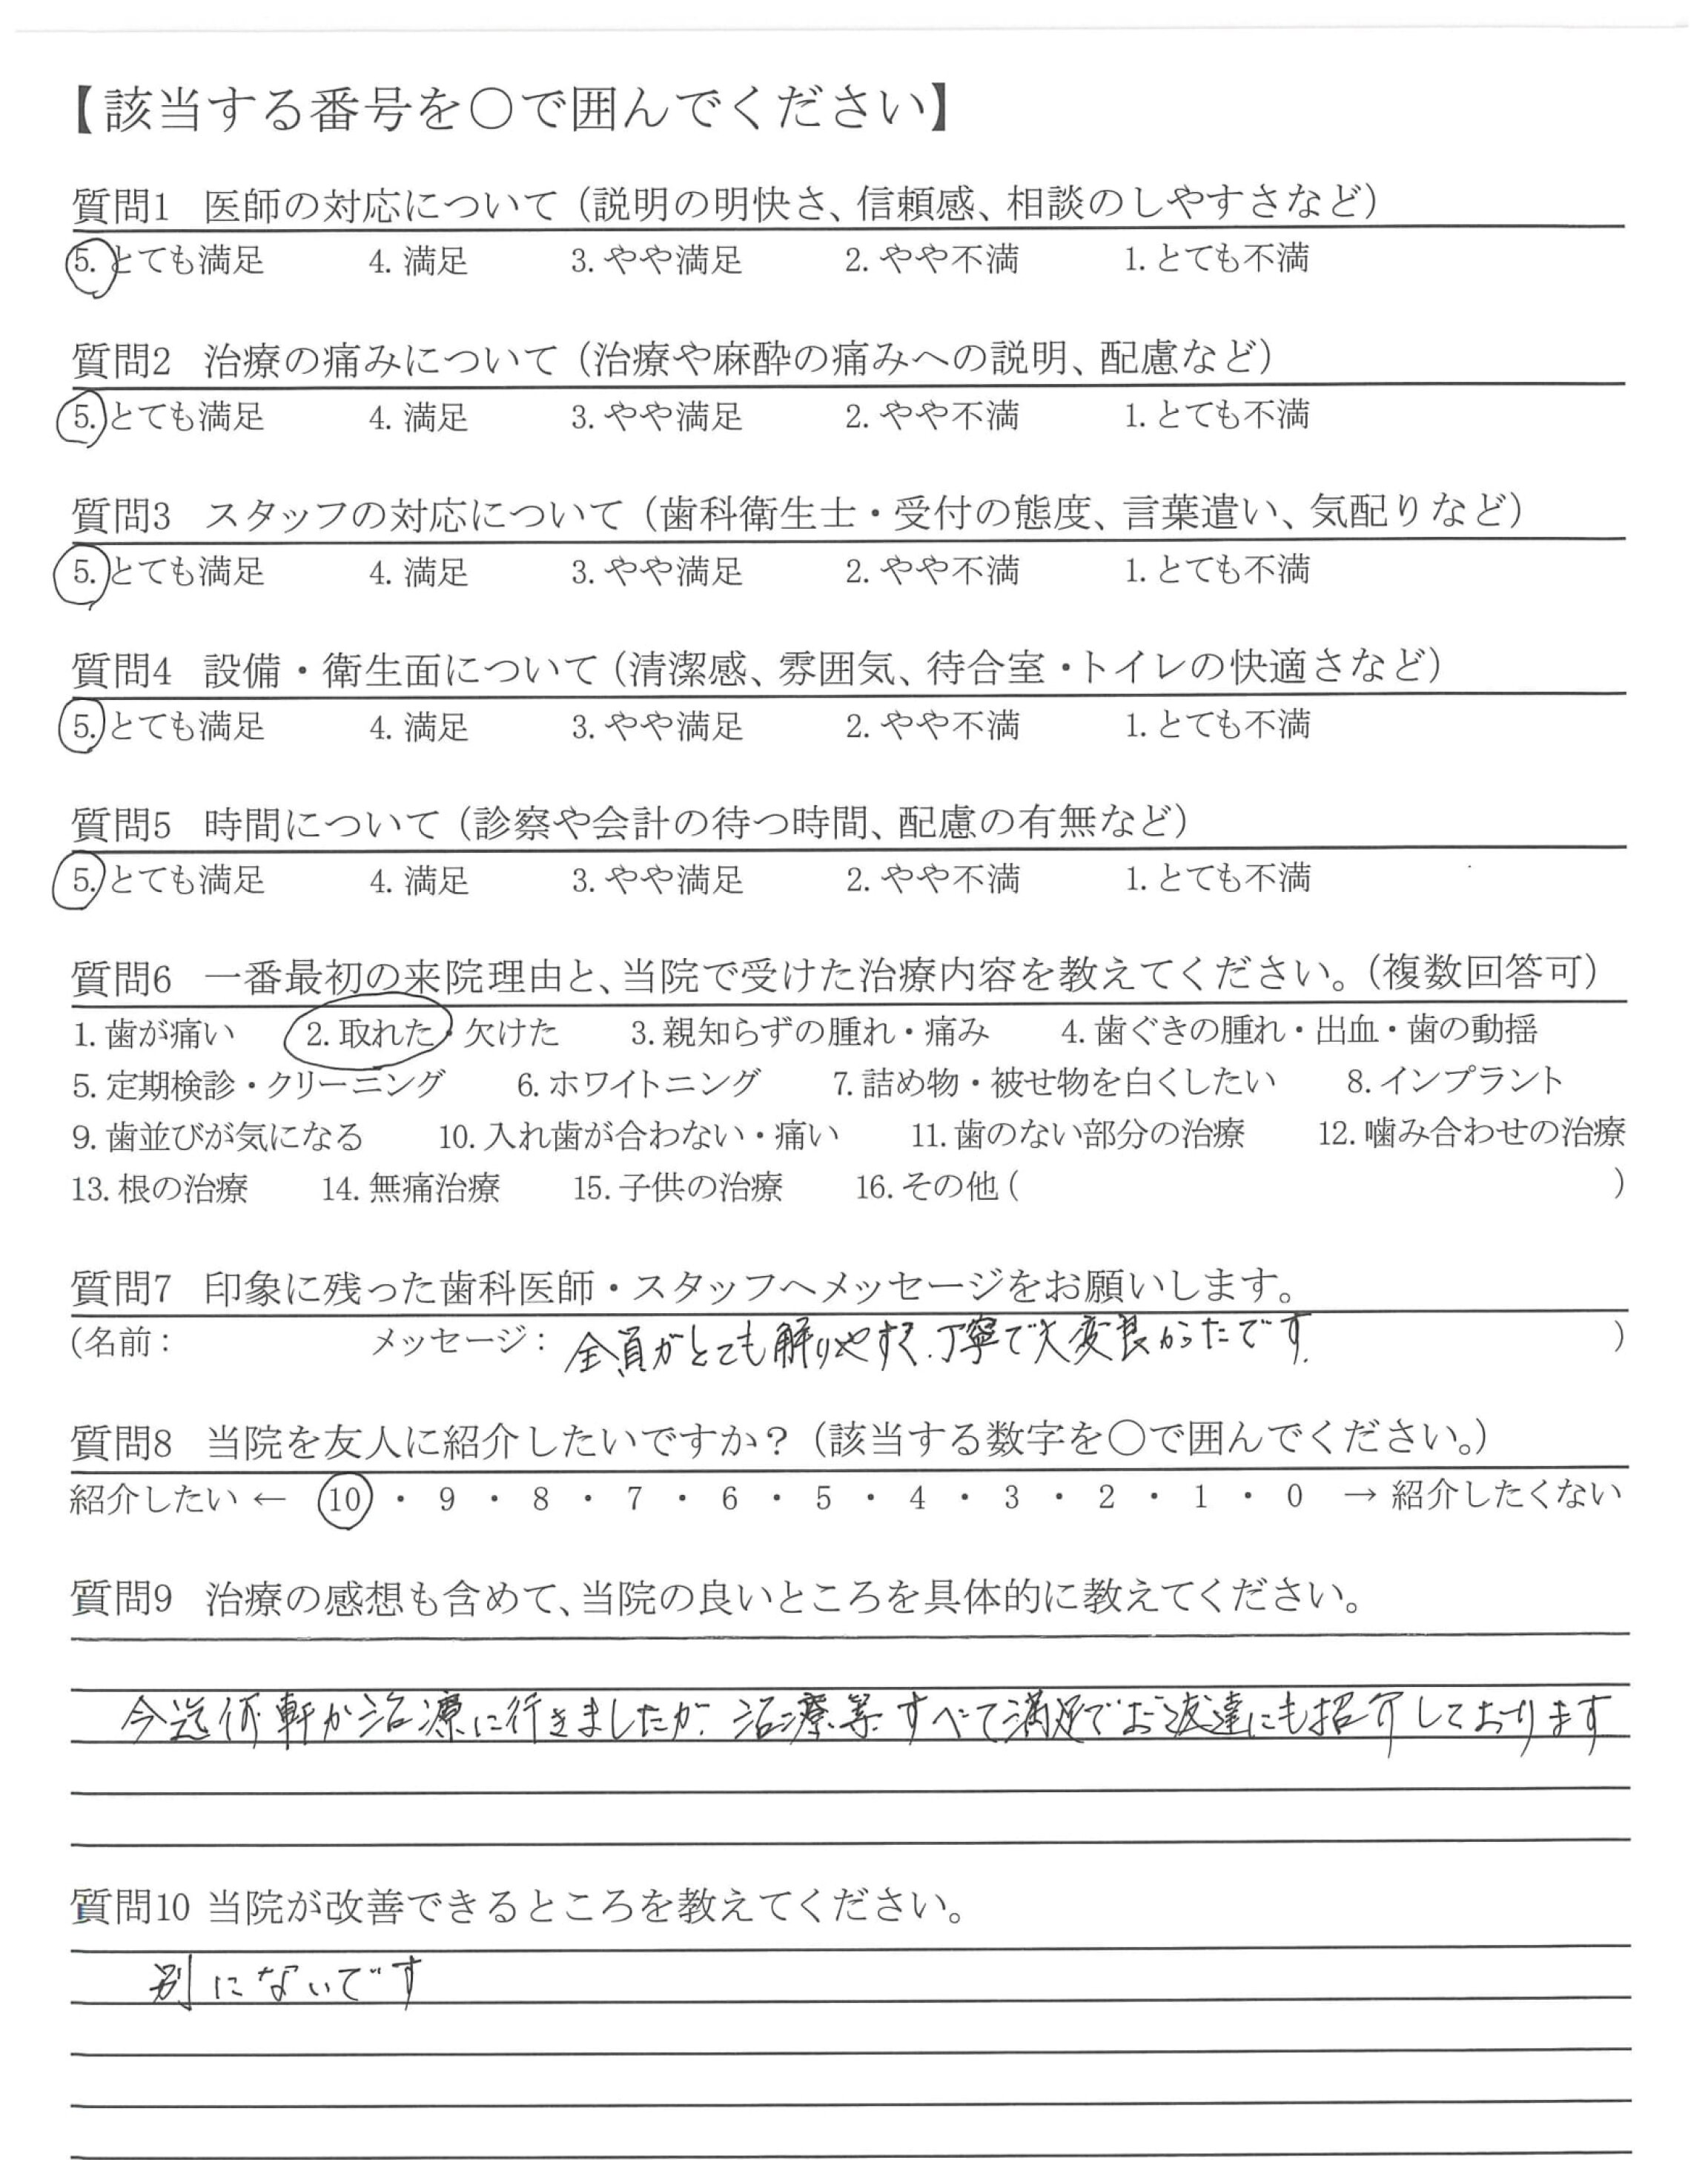 【該当する番号を○で囲んでください】
質問1 医師の対応について（説明の明快さ、信頼感、相談のしやすさなど）
5. とても満足 4. 満足 3. やや満足 2. やや不満 1. とても不満
質問2 治療の痛みについて（治療や麻酔の痛みへの説明、配慮など）
5. とても満足 4. 満足 3. やや満足 2. やや不満 1. とても不満
質問3 スタッフの対応について（歯科衛生士・受付の態度、言葉遣い、気配りなど）
5. とても満足 4. 満足 3. やや満足 2. やや不満 1. とても不満
質問4 設備・衛生面について（清潔感、雰囲気、待合室・トイレの快適さなど）
5. とても満足 4. 満足 3. やや満足 2. やや不満 1. とても不満
質問5 時間について（診察や会計の待つ時間、配慮の有無など）
5. とても満足 4. 満足 3. やや満足 2. やや不満 1. とても不満
質問6 一番最初の来院理由と、当院で受けた治療内容を教えてください。（複数回答可）
1. 歯が痛い 2. 取れた・欠けた 3. 親知らずの腫れ・痛み 4. 歯ぐきの腫れ・出血・歯の動揺
5. 定期検診・クリーニング 6. ホワイトニング 7. 詰め物・被せ物を白くしたい 8. インプラント
9. 歯並びが気になる 10. 入れ歯が合わない・痛い 11. 歯のない部分の治療 12. 噛み合わせの治療
13. 根の治療 14. 無痛治療 15. 子供の治療 16. その他（ ）
質問7 印象に残った歯科医師・スタッフへメッセージをお願いします。
（名前： メッセージ：全員がとても解りやすく、丁寧で大変良かったです. ）
質問8 当院を友人に紹介したいですか？（該当する数字を○で囲んでください。）
紹介したい ← 10 ・ 9 ・ 8 ・ 7 ・ 6 ・ 5 ・ 4 ・ 3 ・ 2 ・ 1 ・ 0 → 紹介したくない
質問9 治療の感想も含めて、当院の良いところを具体的に教えてください。
今迄何軒か治療に行きましたが、治療等すべて満足でお友達にも紹介しております
質問10 当院が改善できるところを教えてください。
別にないです